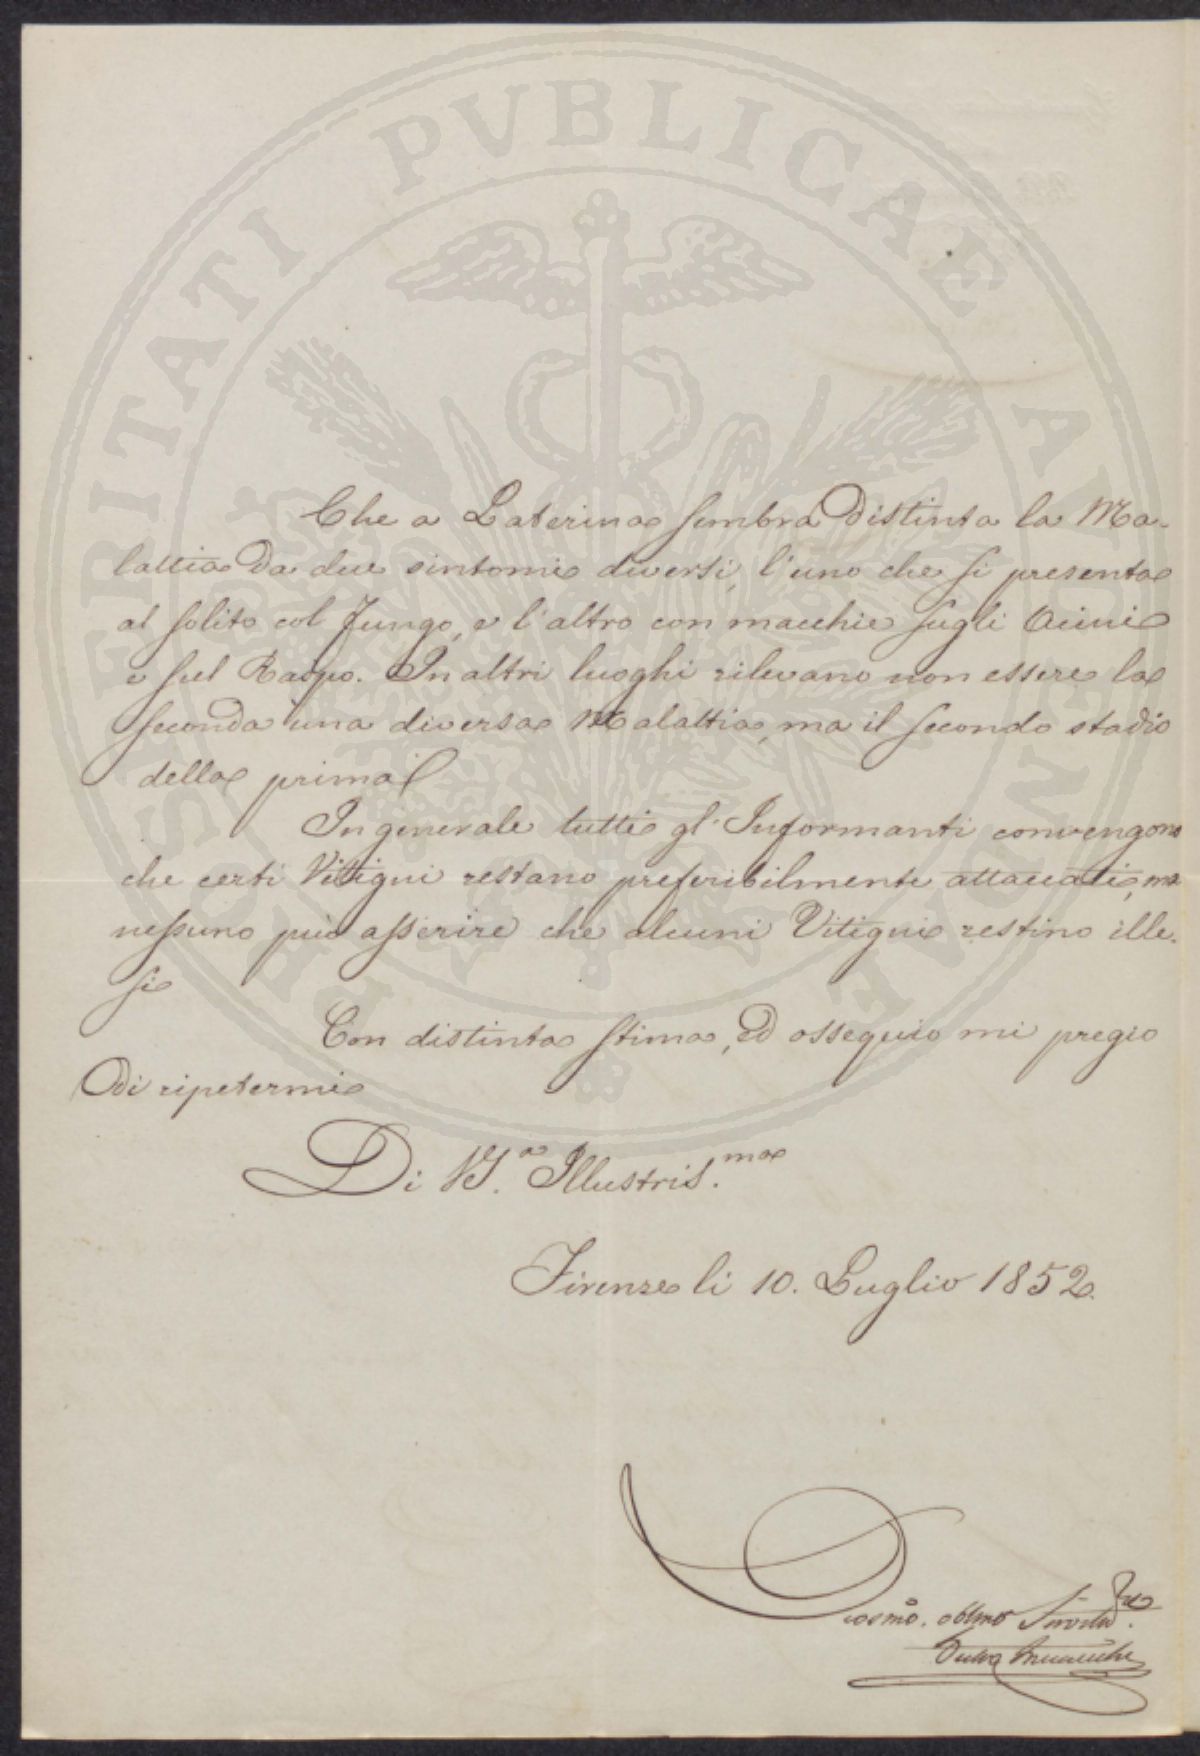 PROSPERITATI PVBLICAE AVGENDAE
Che a Laterina sembra distinta la Ma-
lattia da due sintomi diversi, l'uno che si presenta
al solito col Fungo, e l'altro con macchie sugli Acini
e sul Raspo. In altri luoghi rilevano non essere la
seconda una diversa Malattia, ma il secondo stadio
della prima
In generale tutti gl'Informanti convengono
che certi Vitigni restano preferibilmente attaccati, ma
nessuno può asserire che alcuni Vitigni restino ille-
si
Con distinta stima, ed ossequio mi pregio
di ripetermi
Di V.S.a Illustris.ma
Firenze li 10. Luglio 1852.
obbmo